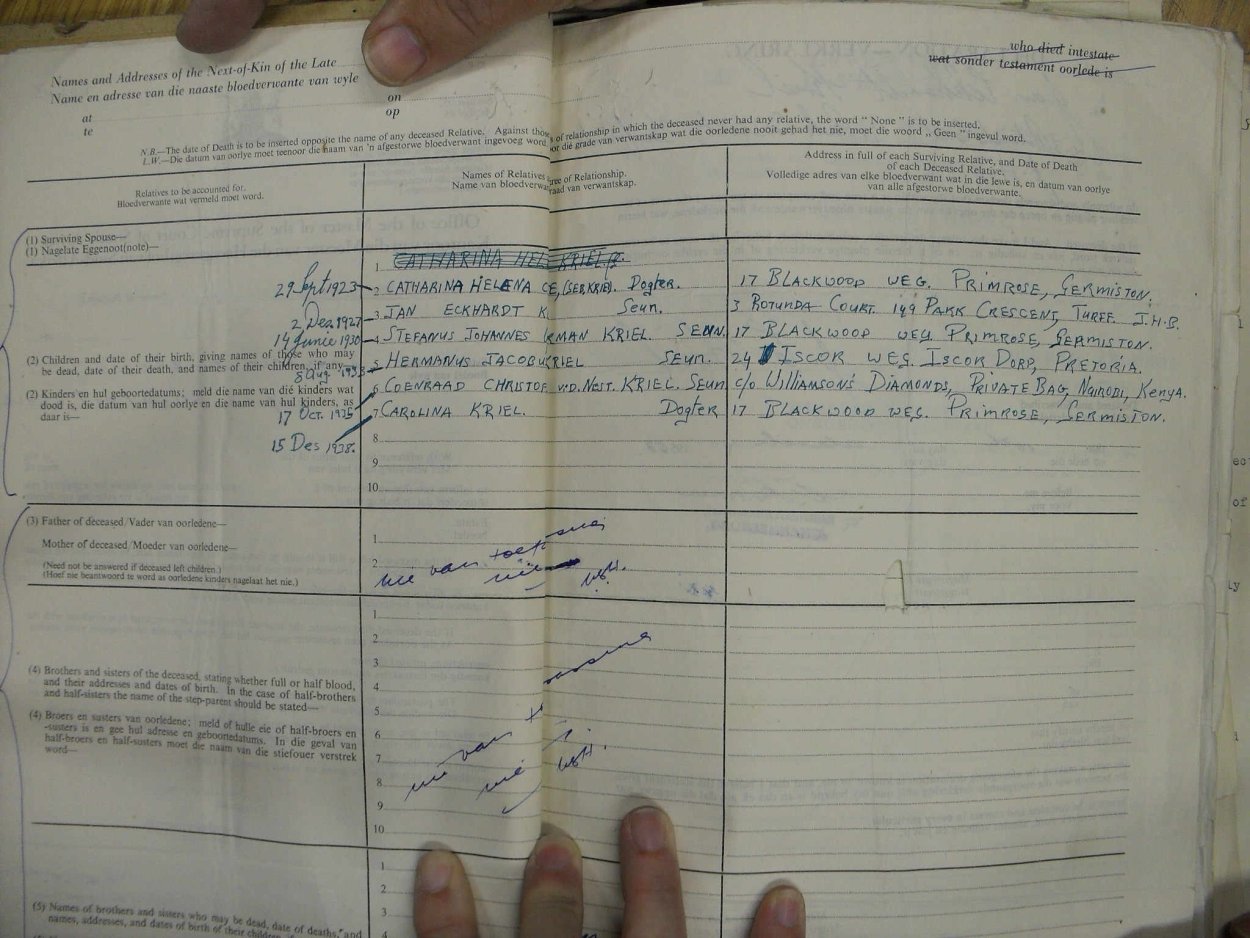 Names and Addresses of the Next-of-Kin of the Late
Name en adresse van die naaste bloedverwante van wyle
who died intestate
wat sonder testament oorlede is
at
te
on
op
N.B.—The date of Death is to be inserted opposite the name of any deceased Relative. Against those s of relationship in which the deceased never had any relative, the word "None" is to be inserted.
L.W.—Die datum van oorlye moet teenoor die naam van 'n afgestorwe bloedverwant ingevoeg word oor dié grade van verwantskap wat die oorledene nooit gehad het nie, moet die woord „Geen" ingevul word.
Relatives to be accounted for.
Bloedverwante wat vermeld moet word.
Names of Relatives ree of Relationship.
Name van bloedverwa raad van verwantskap.
Address in full of each Surviving Relative, and Date of Death
of each Deceased Relative.
Volledige adres van elke bloedverwant wat in die lewe is, en datum van oorlye
van alle afgestorwe bloedverwante.
(1) Surviving Spouse—
(1) Nagelate Eggenoot(note)—
1 CATHARINA HEL KRIEL
29 Sept 1923 2 CATHARINA HELENA CE, (GEB. KRIEL). Dogter. 17 BLACKWOOD WEG. PRIMROSE, GERMISTON.
2 Des. 1927 3 JAN ECKHARDT K Seun. 3 ROTUNDA COURT. 149 PARK CRESCENT, TURFF. J.H.B.
14 Junie 1930 4 STEFANUS JOHANNES RMAN KRIEL SEUN. 17 BLACKWOOD WEG. PRIMROSE, GERMISTON.
(2) Children and date of their birth, giving names of those who may
be dead, date of their death, and names of their children, if any—
8 Aug. 1933 5 HERMANUS JACOBU KRIEL SEUN. 24 ISCOR WEG. ISCOR DORP, PRETORIA.
(2) Kinders en hul geboortedatums; meld die name van dié kinders wat
dood is, die datum van hul oorlye en die name van hul kinders, as
daar is—
17 Oct. 1935 6 COENRAAD CHRISTOF V.D. NEST. KRIEL. Seun c/o WILLIAMSON'S DIAMONDS, PRIVATE BAG, NAIROBI, Kenya.
15 Des 1938. 7 CAROLINA KRIEL. Dogter 17 BLACKWOOD WEG. PRIMROSE, GERMISTON.
8
9
10
(3) Father of deceased/Vader van oorledene—
Mother of deceased/Moeder van oorledene—
(Need not be answered if deceased left children.)
(Hoef nie beantwoord te word as oorledene kinders nagelaat het nie.)
1
2
nie van
nie
1
2
3
4
5
6
7
8
9
10
(4) Brothers and sisters of the deceased, stating whether full or half blood,
and their addresses and dates of birth. In the case of half-brothers
and half-sisters the name of the step-parent should be stated—
(4) Broers en susters van oorledene; meld of hulle eie of half-broers en
-susters is en gee hul adresse en geboortedatums. In die geval van
half-broers en half-susters moet die naam van die stiefouer verstrek
word—
nie van
nie
1
2
3
4
(5) Names of brothers and sisters who may be dead, date of deaths, and
names, addresses, and dates of birth of their children